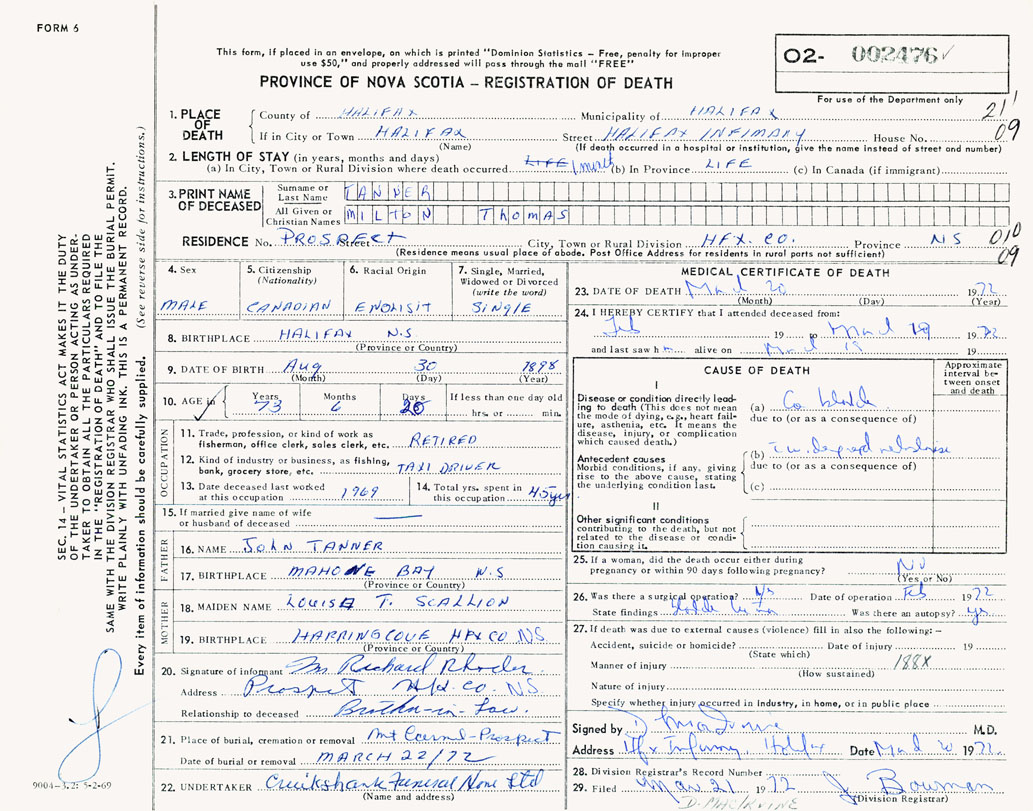 FORM 6
This form, if placed in an envelope, on which is printed "Dominion Statistics – Free, penalty for improper
use $50," and properly addressed will pass through the mail "FREE"
PROVINCE OF NOVA SCOTIA – REGISTRATION OF DEATH
02- 002476
For use of the Department only
21
09
1. PLACE OF DEATH
County of HALIFAX Municipality of HALIFAX
If in City or Town HALIFAX Street HALIFAX INFIMARY House No.
(Name) (If death occurred in a hospital or institution, give the name instead of street and number)
2. LENGTH OF STAY (in years, months and days)
(a) In City, Town or Rural Division where death occurred LIFE 1 month (b) In Province LIFE (c) In Canada (if immigrant)
3. PRINT NAME OF DECEASED
Surname or Last Name TANNER
All Given or Christian Names MILTON Thomas
RESIDENCE No. PROSPECT Street City, Town or Rural Division HFX. CO. Province NS
010
09
(Residence means usual place of abode. Post Office Address for residents in rural parts not sufficient)
4. Sex MALE
5. Citizenship (Nationality) CANADIAN
6. Racial Origin ENGLISH
7. Single, Married, Widowed or Divorced (write the word) SINGLE
8. BIRTHPLACE HALIFAX N.S
(Province or Country)
9. DATE OF BIRTH Aug 30 1898
(Month) (Day) (Year)
10. AGE in Years 73 Months 6 Days 20 If less than one day old hrs. or min.
OCCUPATION
11. Trade, profession, or kind of work as fisherman, office clerk, sales clerk, etc. RETIRED
12. Kind of industry or business, as fishing, bank, grocery store, etc. TAXI DRIVER
13. Date deceased last worked at this occupation 1969
14. Total yrs. spent in this occupation 45 yrs
15. If married give name of wife or husband of deceased
FATHER
16. NAME JOHN TANNER
17. BIRTHPLACE MAHONE BAY N.S
(Province or Country)
MOTHER
18. MAIDEN NAME LOUISE T. SCALLION
19. BIRTHPLACE HARRINGCOVE HFX CO NS
(Province or Country)
20. Signature of informant Richard Rhoder
Address Prospect Hfx. Co. NS
Relationship to deceased Brother-in-Law.
21. Place of burial, cremation or removal Mt Carmel-Prospect
Date of burial or removal MARCH 22/72
22. UNDERTAKER Cruikshank Funeral Home Ltd
(Name and address)
MEDICAL CERTIFICATE OF DEATH
23. DATE OF DEATH March 20 1972
(Month) (Day) (Year)
24. I HEREBY CERTIFY that I attended deceased from:
Feb 19 to March 19 1972
and last saw h m alive on March 19 19
CAUSE OF DEATH
Approximate interval between onset and death
I
Disease or condition directly leading to death (This does not mean the mode of dying, e.g., heart failure, asthenia, etc. It means the disease, injury, or complication which caused death.)
(a) Ca bladder
due to (or as a consequence of)
Antecedent causes
Morbid conditions, if any, giving rise to the above cause, stating the underlying condition last.
(b)
due to (or as a consequence of)
(c)
II
Other significant conditions
contributing to the death, but not related to the disease or condition causing it.
25. If a woman, did the death occur either during pregnancy or within 90 days following pregnancy? NO
(Yes or No)
26. Was there a surgical operation? yes Date of operation Feb 1972
State findings Was there an autopsy? yes
27. If death was due to external causes (violence) fill in also the following: –
Accident, suicide or homicide? Date of injury 19
(State which)
Manner of injury 188X
(How sustained)
Nature of injury
Specify whether injury occurred in Industry, in home, or in public place
Signed by M.D.
Address Hfx Infirmary Halifax Date March 20 1972
28. Division Registrar's Record Number
29. Filed Mar 21 1972 J. Bowman
(Division Registrar)
SEC. 14 – VITAL STATISTICS ACT MAKES IT THE DUTY
OF THE UNDERTAKER OR PERSON ACTING AS UNDER-
TAKER TO OBTAIN ALL THE PARTICULARS REQUIRED
IN THE "REGISTRATION OF DEATH" AND TO FILE THE
SAME WITH THE DIVISION REGISTRAR WHO SHALL ISSUE THE BURIAL PERMIT.
WRITE PLAINLY WITH UNFADING INK. THIS IS A PERMANENT RECORD.
Every item of information should be carefully supplied. (See reverse side for instructions.)
9004-3.2: 5-2-69